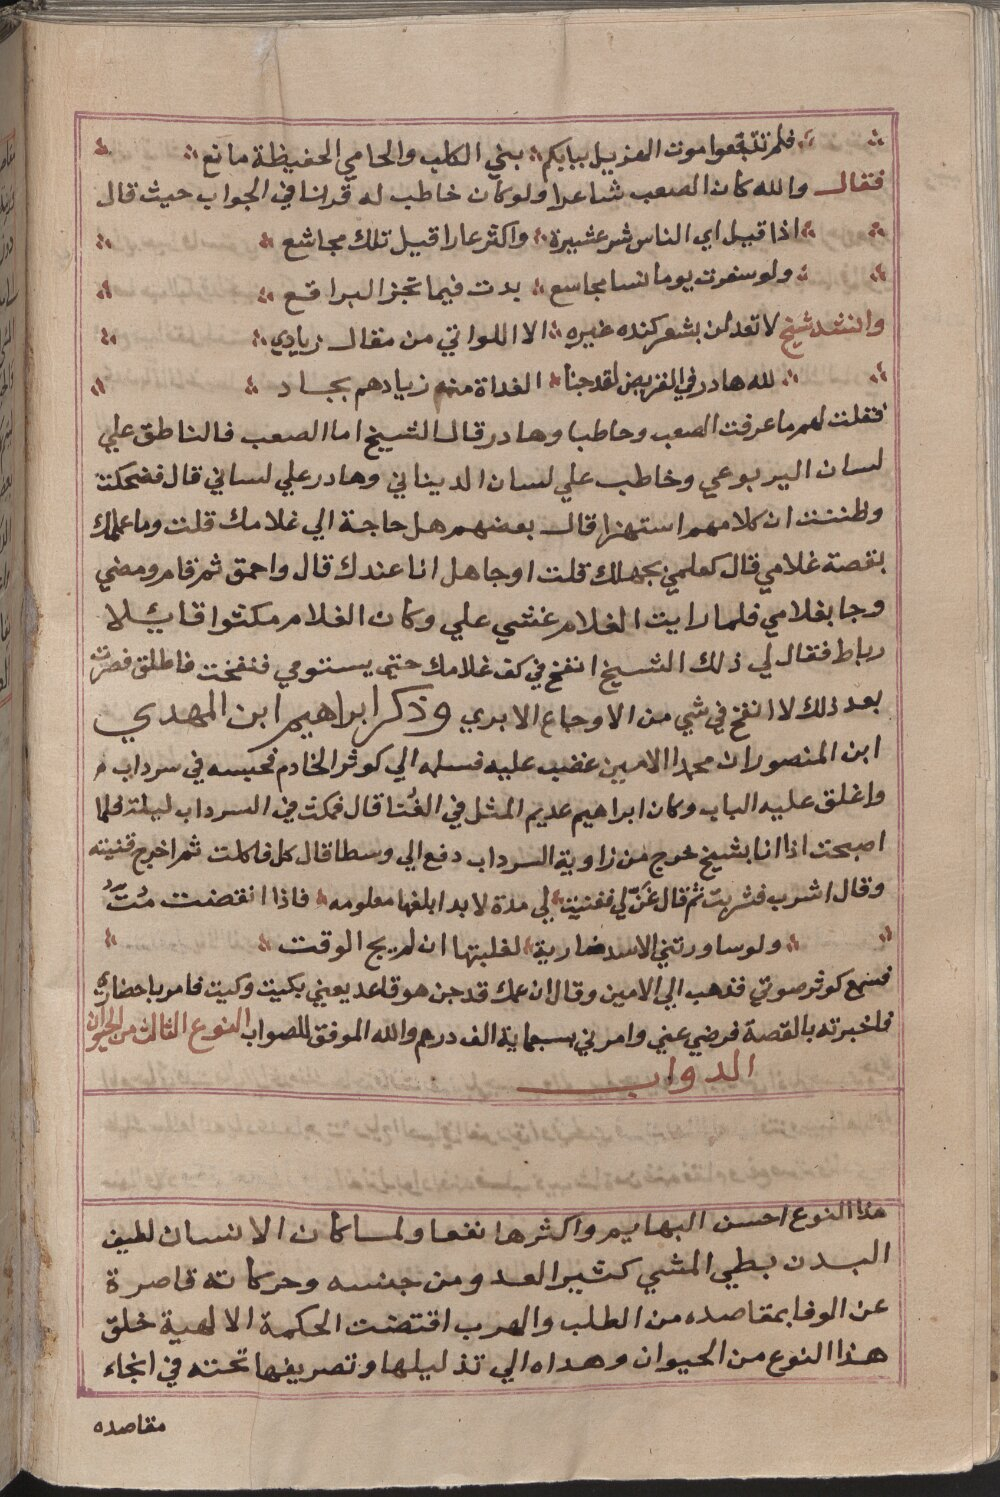 فلم تقبعوا موت الهزيل ببابكم بني الكلب والحامي الحفيظة مانع
فقال والله كان الصعب شاعرا ولو كان خاطب له قرنا في الجواب حيث قال
اذا قيل اي الناس شر عشيرة واكثر عارا قيل تلك مجاشع
ولو سفرت يوما نسا مجاسع بدت فيما تجز البراقع
وانشد شيخ لا تعدلن بشعر كنده غيره الا اللواتي من مقال زيادي
لله هادر في القريض لقد جنا الغداة منهم زيادهم بجاد
فقلت لهم ما عرفت الصعب وحاطبا وهادر قال الشيخ اما الصعب فالناطق علي
لسان اليربوعي وخاطب علي لسان الديناني وهادر علي لساني قال فضحكت
وظننت ان كلامهم استهزا قال بعضهم هل حاجة الي غلامك قلت وما علمك
بقصة غلامي قال كعلمي بجهلك قلت او جاهل انا عندك قال واحمق ثم قام ومضي
وجا بغلامي فلما رايت الغلام غشي علي وكان الغلام مكتوا قايلا
رباط فقال لي ذلك الشيخ انفخ في كف غلامك حتي يستومي فنفخت فاطلق فصرت
بعد ذلك لا انفخ في شي من الاوجاع الا بري وذكر ابراهيم ابن المهدي
ابن المنصور ان محمدا الامين غضب عليه فسلمه الي كوثر الخادم فحبسه في سرداب
واغلق عليه الباب وكان ابراهيم عديم المثل في الغنا قال فمكت في السرداب ليلة فلما
اصبحت اذا انا بشيخ خرج من زاوية السرداب دفع الي وسطا قال كل فاكلت ثم اخرج قنينه
وقال اشرب فشربت ثم قال غن لي فغنيت لي مدة لا بد ابلغها معلومه فاذا انقضت مت
ولو ساورتني الاسد ضارية لغلبتها ان لم يج الوقت
فسمع كوثر صوتي فذهب الي الامين وقال ان عمك قد جن هو قاعد يغني بكيت وكيت فامر باحضاري
فاخبرته بالقصة فرضي عني وامر لي بسبعماية الف درهم والله الموفق للصواب النوع الثالث من الحيوان
الدواب
هذا النوع احسن البهايم واكثرها نفعا ولما كان الانسان لطيف
البدن بطي المشي كثير العد ومن جنسه وحركاته قاصرة
عن الوفا بمقاصده من الطلب والهرب اقتضت الحكمة الالهية خلق
هذا النوع من الحيوان وهداه الي تذليلها وتصريفها تحته في انحاء
مقاصده